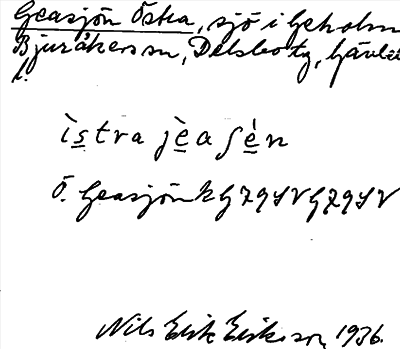 Geasjön Östra, sjö i Geholm
Bjuråkers sn, Delsbo tg, Gävleb.
l.
ìs̲tra jè̲a ʃé̲n
Ö. Geasjön k G 7 9 S V G 7 9 S V
Nils Erik Eriksson 1936.